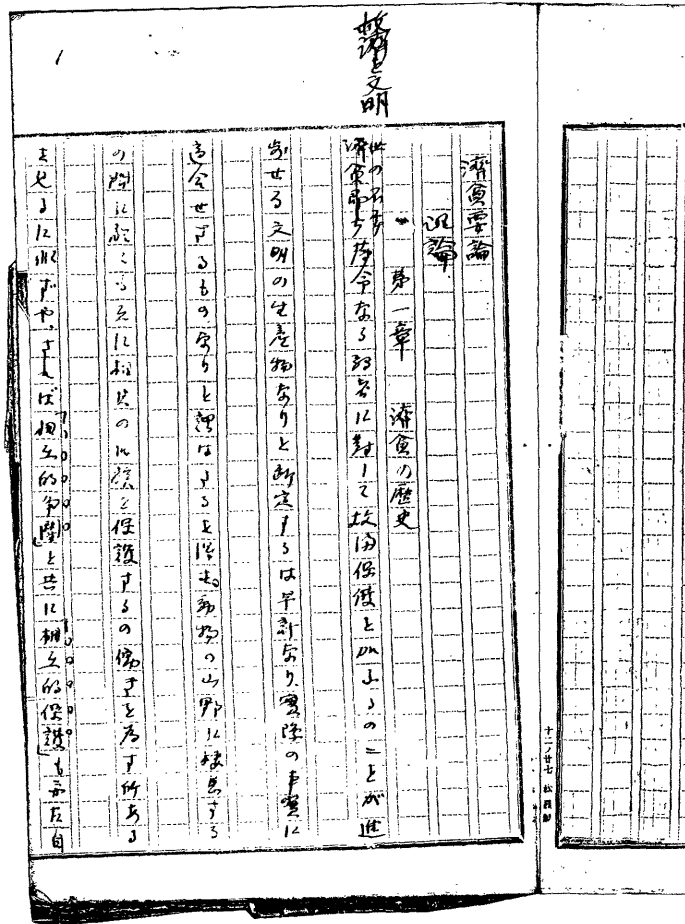 救済と文明
1
済貧要論
理論
第一章 済貧の歴史
世の不幸
済貧即ち薄命なる弱者に對して救済保護を加ふるのことが進
歩せる文明の生産物なりと断定するは早計なり、實際の事實に
適合せざるものなりと謂はざるを得ず、動物の山野に棲息する
の間に於ても互に相共の危険を保護するの働きを為す所ある
を見るに非ずや、されば「相互的争闘」と共に「相互的保護」も亦た自
十ノ廿七